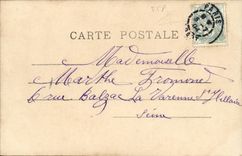 CARTE POSTALE
PARIS
Mademoiselle
Marthe Fromont
6 rue Balzac La Varenne St Hilaire
Seine